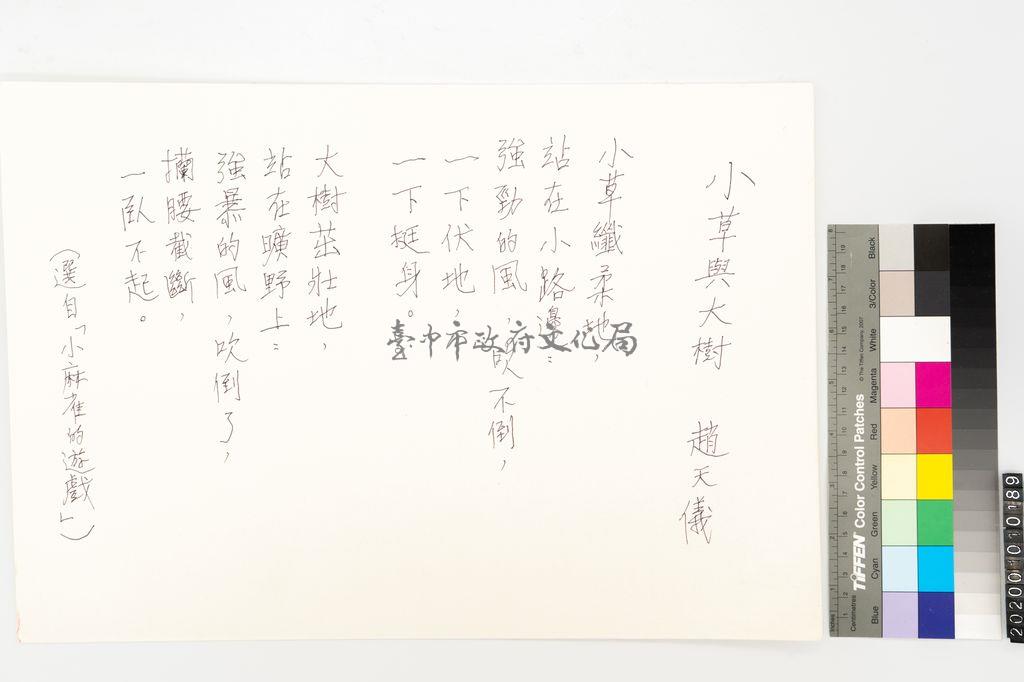 小草與大樹　趙天儀
小草纖柔地，
站在小路邊：
強勁的風，吹不倒，
一下伏地，
一下挺身。
大樹茁壯地，
站在曠野上：
強暴的風，吹倒了，
攔腰截斷，
一臥不起。
（選自「小麻雀的遊戲」）
臺中市政府文化局
TIFFEN Color Control Patches
© The Tiffen Company, 2007
Centimetres
Inches
Blue
Cyan
Green
Yellow
Red
Magenta
White
3/Color
Black
202001010189